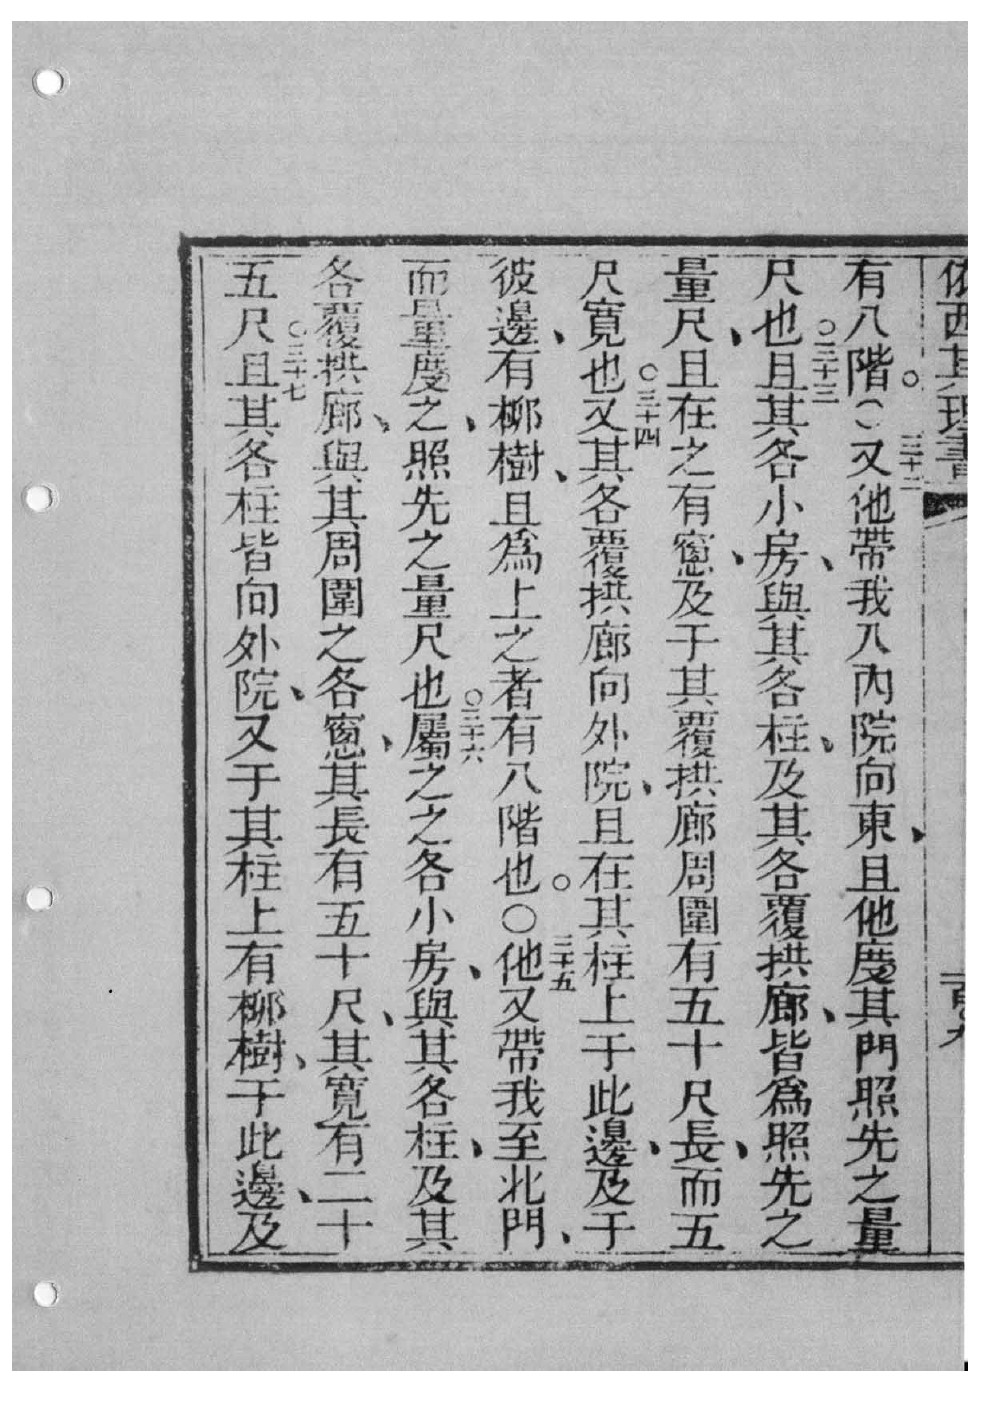 依西其理書 百九
有八階。○三十二又他帶我入內院向東、且他度其門照先之量
尺也○三十三且其各小房、與其各柱、及其各覆拱廊、皆爲照先之
量尺、且在之有窻、及于其覆拱廊周圍有五十尺長、而五
尺寬也○三十四又其各覆拱廊向外院、且在其柱上于此邊、及于
彼邊、有柳樹、且爲上之者有八階也。○三十五他又帶我至北門、
而量度之、照先之量尺也○三十六屬之之各小房、與其各柱、及其
各覆拱廊、與其周圍之各窻、其長有五十尺、其寬有二十
五尺○三十七且其各柱皆向外院、又于其柱上有柳樹、于此邊、及